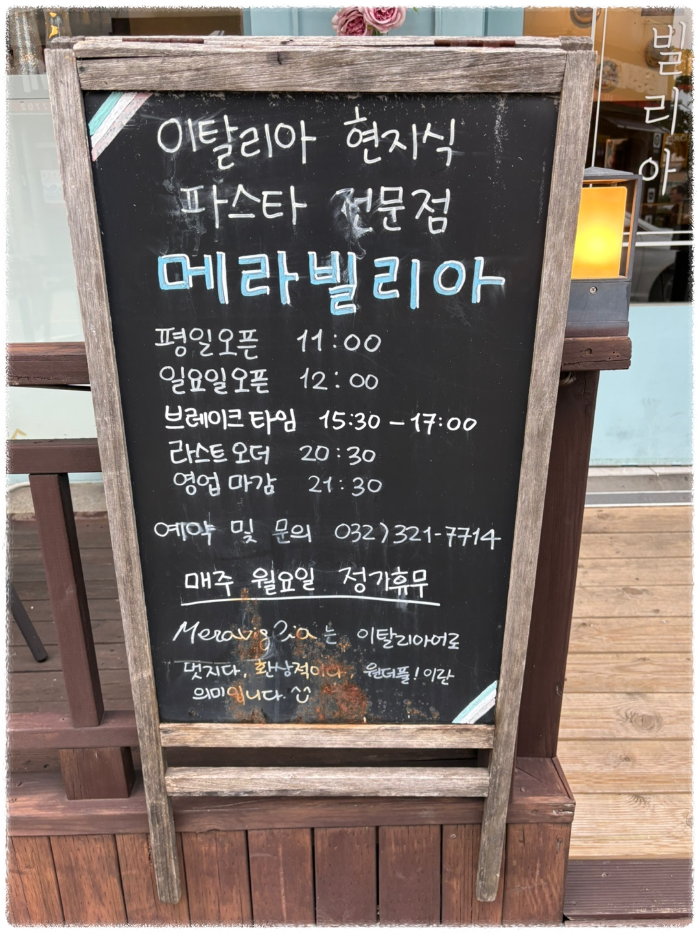 이탈리아 현지식
파스타 전문점
메라빌리아
평일오픈 11:00
일요일오픈 12:00
브레이크타임 15:30 - 17:00
라스트오더 20:30
영업마감 21:30
예약 및 문의 032)321-7714
매주 월요일 정기휴무
Meraviglia는 이탈리아어로
멋지다, 환상적이다, 원더풀! 이란
의미입니다.
빌리아